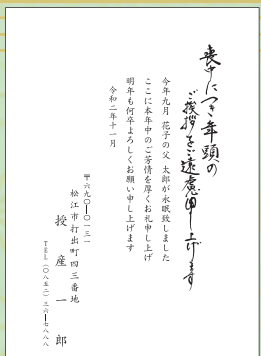 喪中につき年頭の
ご挨拶をご遠慮申し上げます
今年九月 花子の父 太郎が永眠致しました
ここに本年中のご芳情を厚くお礼申し上げ
明年も何卒よろしくお願い申し上げます
令和二年十一月
〒六九〇―〇一三一
松江市打出町四三番地
授産一郎
TEL(〇八五二)三六―七八八八